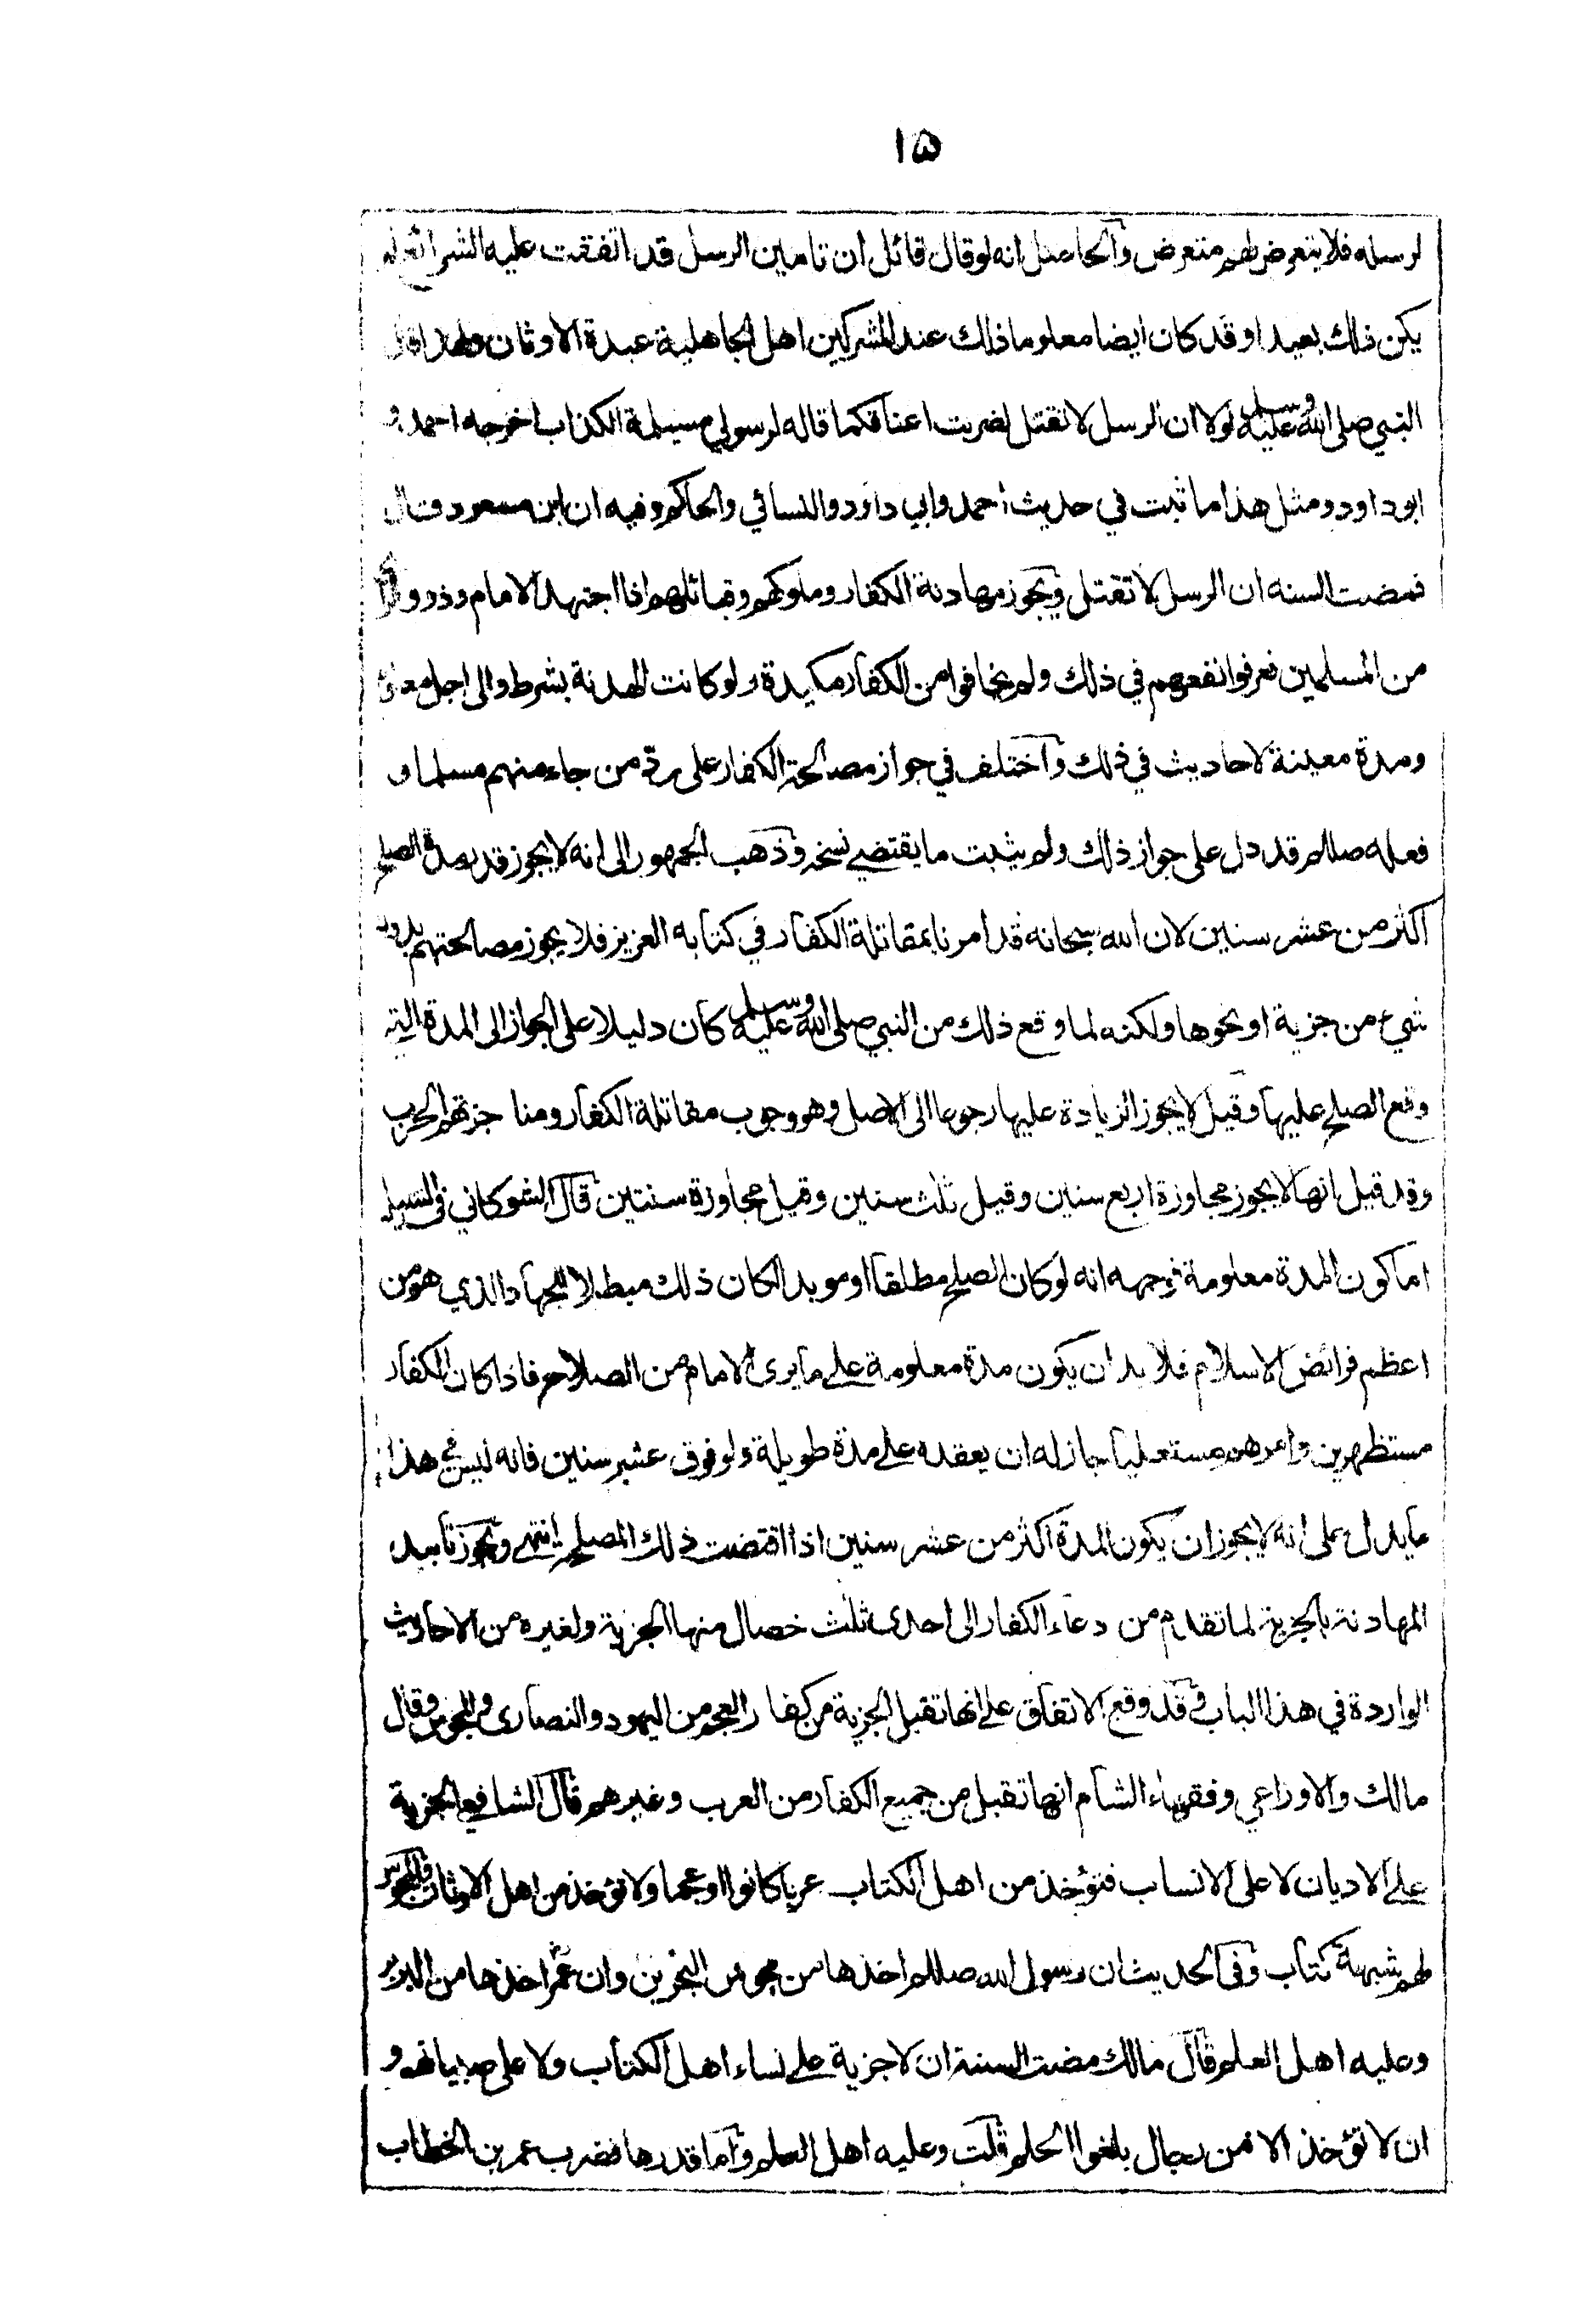 ١٥
لرسله فلا يتعرض لهم متعرض والحاصل انه لو قال قائل ان تامين الرسل قد اتفقت عليه الشرائع لم
يكن ذلك بعيدا وقد كان ايضا معلوما ذلك عند المشركين اهل الجاهلية عبدة الاوثان ولهذا قال
النبي صلى الله عليه وسلم لولا ان الرسل لا تقتل لضربت اعناقكما قاله لرسولي مسيلمة الكذاب اخرجه احمد و
ابو داود ومثل هذا ما ثبت في حديث احمد وابي داود والنسائي والحاكم وفيه ان ابن مسعود قال
فمضت السنه ان الرسل لا تقتل ويجوز مهادنة الكفار وملوكهم وقبائلهم اذا اجتهد الامام وذوو
من المسلمين فعرفوا نفعهم في ذلك ولم يخافوا من الكفار مكيدة ولو كانت الهدنة بشرط والى اجل
ومدة معينة لاحاديث في ذلك واختلف في جواز مصالحة الكفار على رد من جاء منهم مسلما و
فعله صللم قد دل على جواز ذلك ولم يثبت ما يقتضي نسخه وذهب الجمهور الى انه لا يجوز قدر مدة الصلح
اكثر من عشر سنين لان الله سبحانه قد امرنا بمقاتلة الكفار في كتابه العزيز فلا يجوز مصالحتهم بدون
شيء من جزية او نحوها ولكنه لما وقع ذلك من النبي صلى الله عليه وسلم كان دليلا على الجواز الى المدة التي
وقع الصلح عليها وقيل لا يجوز الزيادة عليها رجوعا الى الاصل وهو وجوب مقاتلة الكفار ومناجزتهم الحرب
وقد قيل انها لا يجوز مجاوزة اربع سنين وقيل ثلث سنين وقيل مجاوزة سنتين قال الشوكاني في السيل
اما كون المدة معلومة فوجهه انه لو كان الصلح مطلقا او موبدا لكان ذلك مبطلا للجهاد الذي هو من
اعظم فرائض الاسلام فلا بد ان يكون مدة معلومة على ما يرى الامام من الصلاح فاذا كان الكفار
مستظهرين وامرهم مستعليا جاز له ان يعقده على مدة طويلة ولو فوق عشر سنين فانه ليس في هذا
ما يدل على انه لا يجوز ان يكون المدة اكثر من عشر سنين اذا اقتضت ذلك المصلحة انتهى ويجوز تابيد
المهادنة بالجزية لما تقدم من دعاء الكفار الى احدى ثلث خصال منها الجزية ولغيره من الاحاديث
الواردة في هذا الباب وقد وقع الاتفاق على انها تقبل الجزية من كفار العجم من اليهود والنصارى والمجوس وقال
مالك والاوزاعي وفقهاء الشام انها تقبل من جميع الكفار من العرب وغيرهم قال الشافعي الجزية
على الاديان لا على الانساب فتؤخذ من اهل الكتاب عربا كانوا او عجما ولا تؤخذ من اهل الاوثان والمجوس
لهم شبهة كتاب وفي الحديث ان رسول الله صللم اخذها من مجوس البحرين وان عمر اخذها من البربر
وعليه اهل العلم قال مالك مضت السنة ان لا جزية على نساء اهل الكتاب ولا على صبيانهم و
ان لا تؤخذ الا من رجال بلغوا الحلم قلت وعليه اهل العلم واما قدرها فضرب عمر بن الخطاب